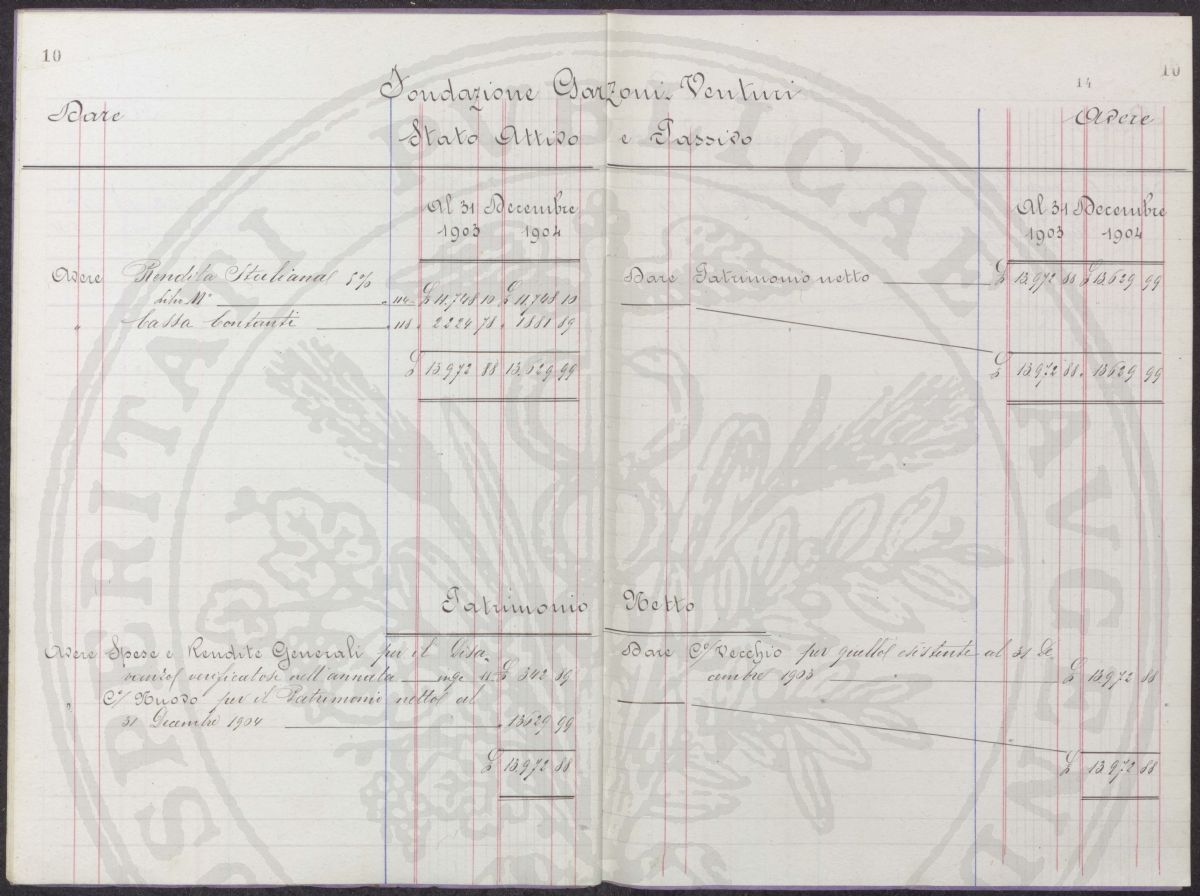 10
14
10
Fondazione Garzoni Venturi
Dare
Avere
Stato Attivo e Passivo
Al 31 Decembre
1903 1904
Avere Rendita Italiana 5 %
Libr N° " 114 £ 11,748 10 £ 11,748 10
" Cassa Contanti " 118 " 2224 78 " 1881 89
£ 13,972 88 13,629 99
Al 31 Decembre
1903 1904
Dare Patrimonio netto £ 13,972 88 £ 13,629 99
£ 13,972 88 " 13629 99
Patrimonio Netto
Avere Spese e Rendite Generali per il Disa-
vanzo verificatosi nell'annata £ 342 89
" C/ Nuovo per il Patrimonio netto al
31 Decembre 1904 " 13629 99
£ 13,972 88
Dare C/ Vecchio per quello esistente al 31 De
cembre 1903 £ 13,972 88
£ 13,972 88
PROSPERITATI PUBLICAE AVGENDAE